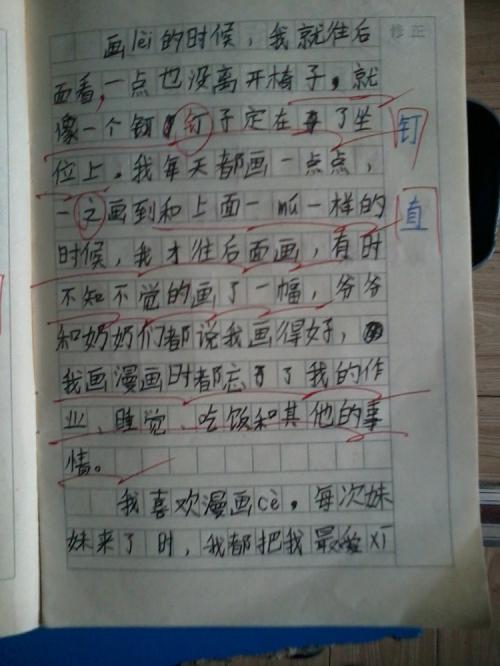 画lèi的时候，我就往后
修正
面看，一点也没离开椅子，就
像一个钉子定在了坐
钉
位上。我每天都画一点点，
一之画到和上面一mú一样的
直
时候，我才往后面画，有时
不知不觉的画了一幅，爷爷
和奶奶们都说我画得好，
我画漫画时都忘了我的作
业、睡觉、吃饭和其他的事
情。
我喜欢漫画cè，每次妹
妹来了时，我都把我最爱xī